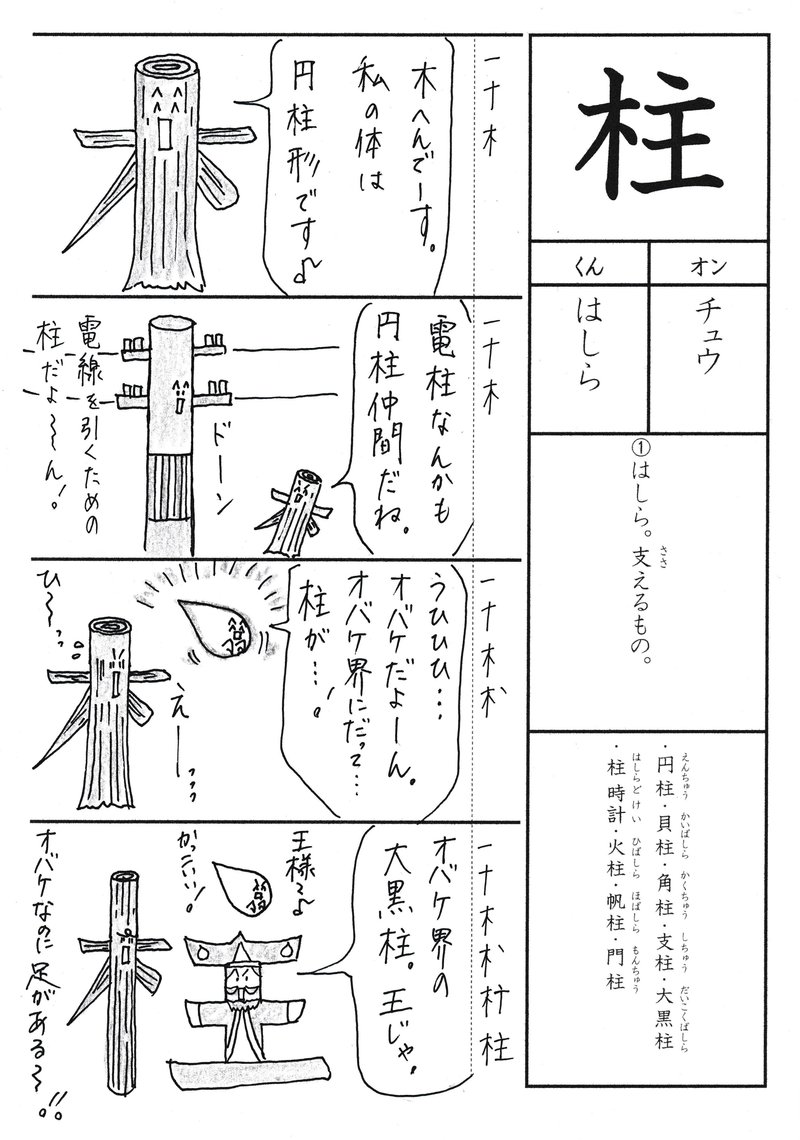 柱
オン
くん
チュウ
はしら
①はしら。支えるもの。
ささ
・円柱・貝柱・角柱・支柱・大黒柱
えんちゅう かいばしら かくちゅう しちゅう だいこくばしら
・柱時計・火柱・帆柱・門柱
はしらどけい ひばしら ほばしら もんちゅう
一十木
木へんでーす。
私の体は
円柱形です♪
一ナ木
電柱なんかも
円柱仲間だね。
ドーン
電線を引くための
柱だよ〜〜ん!
一十木朩
うひひひ…
オバケだよーん。
オバケ界にだって…
柱が…!
えーーっっっ
ひ〜っっ
一十木朩杧柱
オバケ界の
大黒柱。王じゃ。
王様〜♪
かっこいい!
オバケなのに足がある〜!!